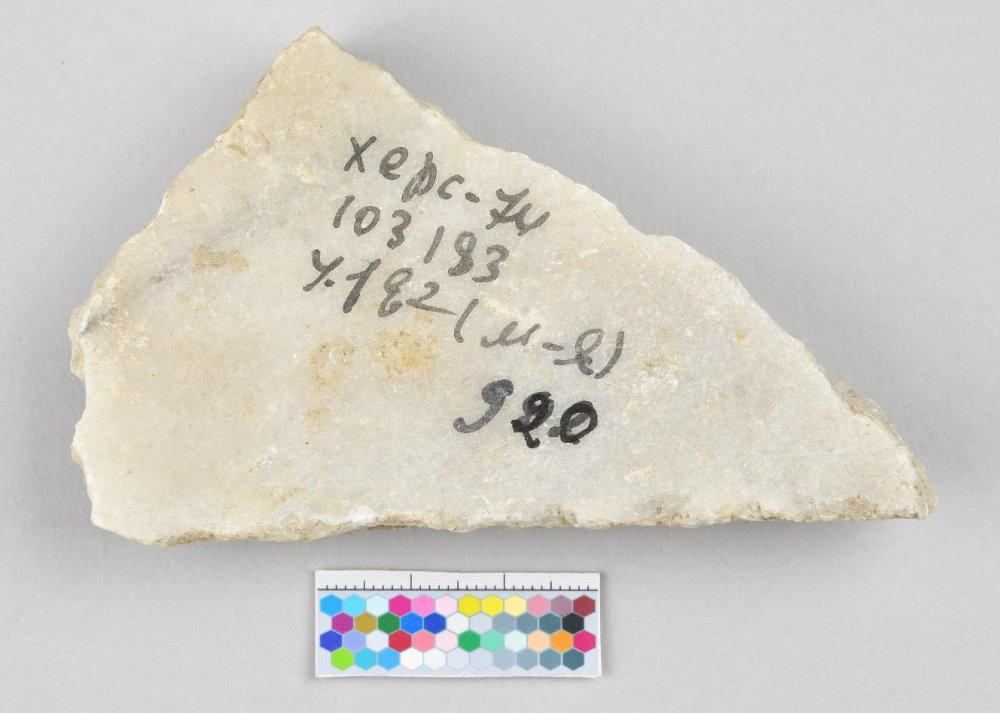 Херс-74
103183
У.182 (М-В)
920